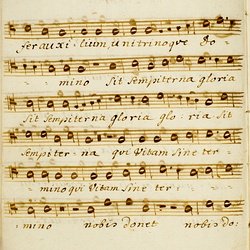 fer auxilium, uni trinoque Do-
mino sit sempiterna gloria
sit sempiterna gloria gloria sit
sempiterna qui vitam sine ter-
mino qui vitam sine ter-
mino nobis donet nobis do: